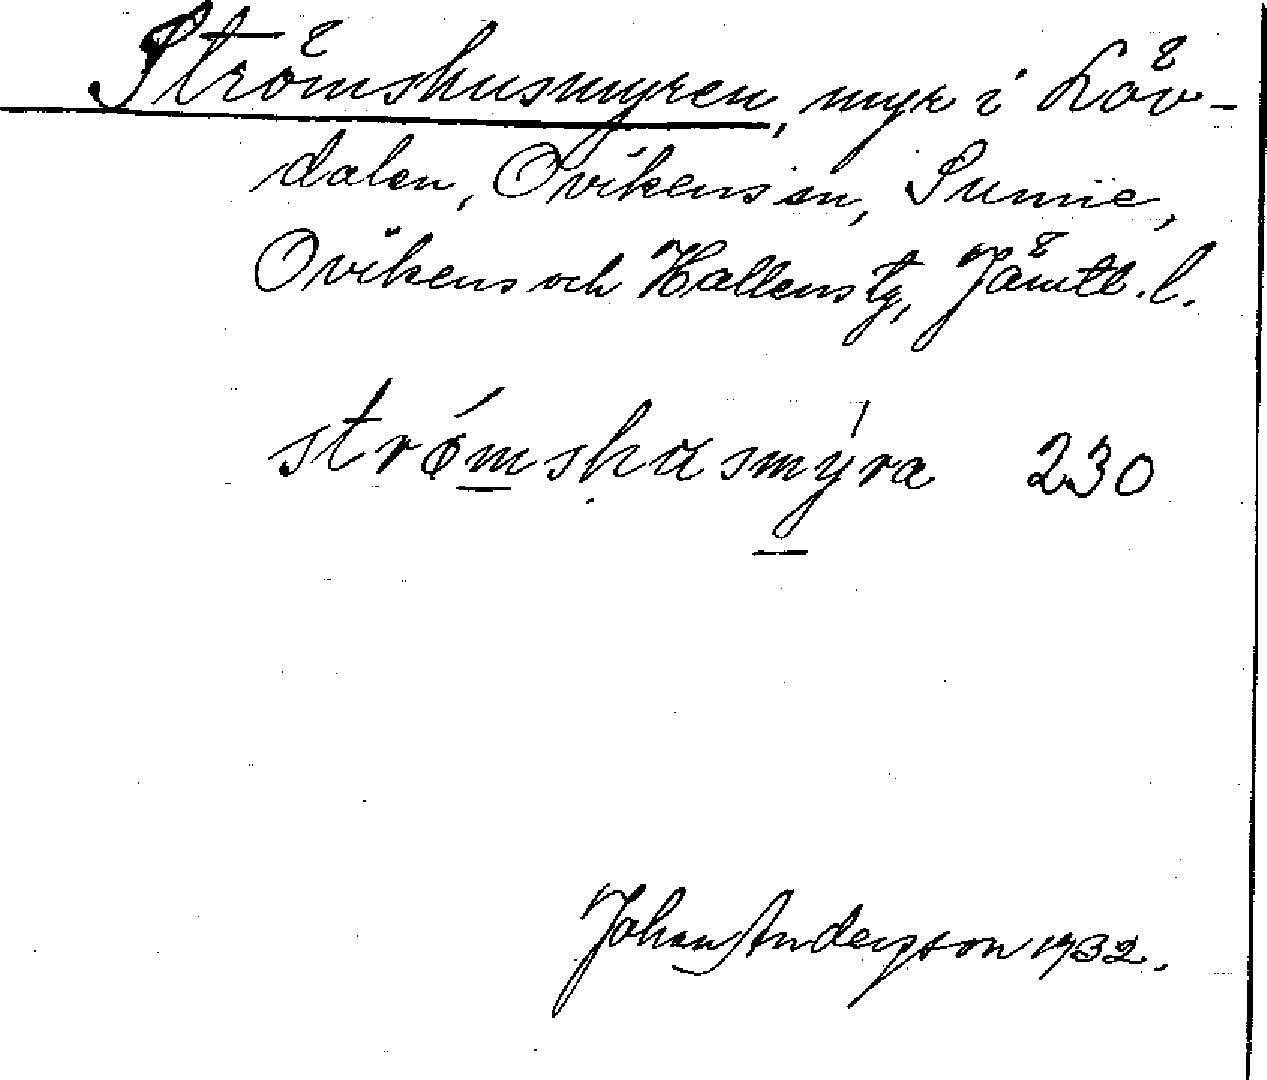 Strömshusmyren, myr i Löv-
dalen, Ovikens sn, Sunne,
Ovikens och Hallens tg, Jämtl. l.
strǿmshʉsmýra 230
Johan Anderson 1932.